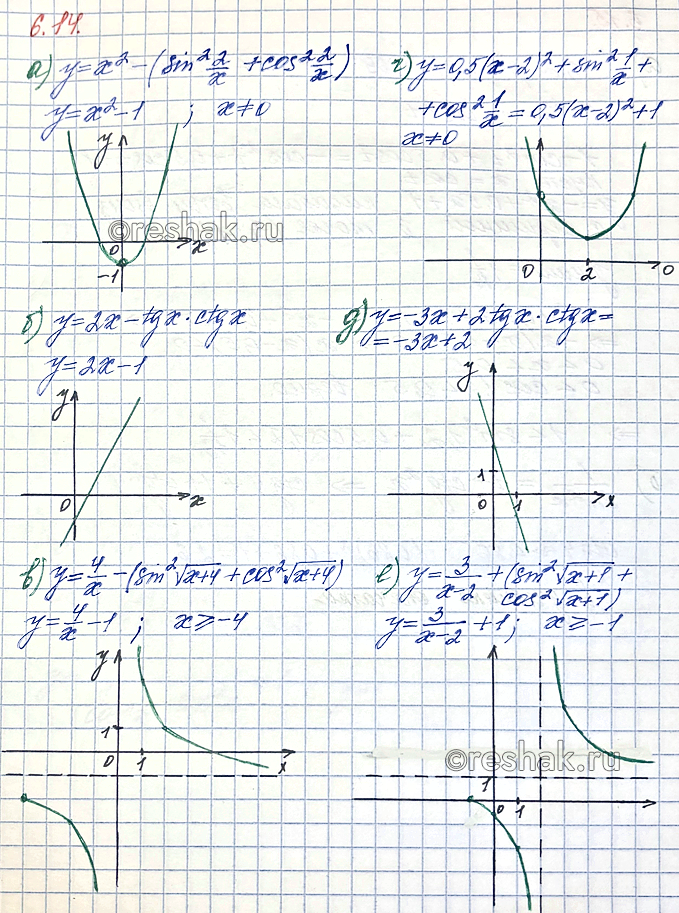 6.14.
а) y = x² - (sin² 2/x + cos² 2/x)
y = x² - 1 ; x ≠ 0
y
©reshak.ru
0 x
-1
г) y = 0,5(x-2)² + sin² 1/x +
+ cos² 1/x = 0,5(x-2)² + 1
x ≠ 0
0 2 0
б) y = 2x - tgx · ctgx
y = 2x - 1
y
0 x
д) y = -3x + 2tgx · ctgx =
= -3x + 2
y
1
0 1 x
в) y = 4/x - (sin² √x+4 + cos² √x+4)
y = 4/x - 1 ; x ⩾ -4
y
1
0 1 x
е) y = 3/x-2 + (sin² √x+1 +
cos² √x+1)
y = 3/x-2 + 1 ; x ⩾ -1
©reshak.ru
1
0 1